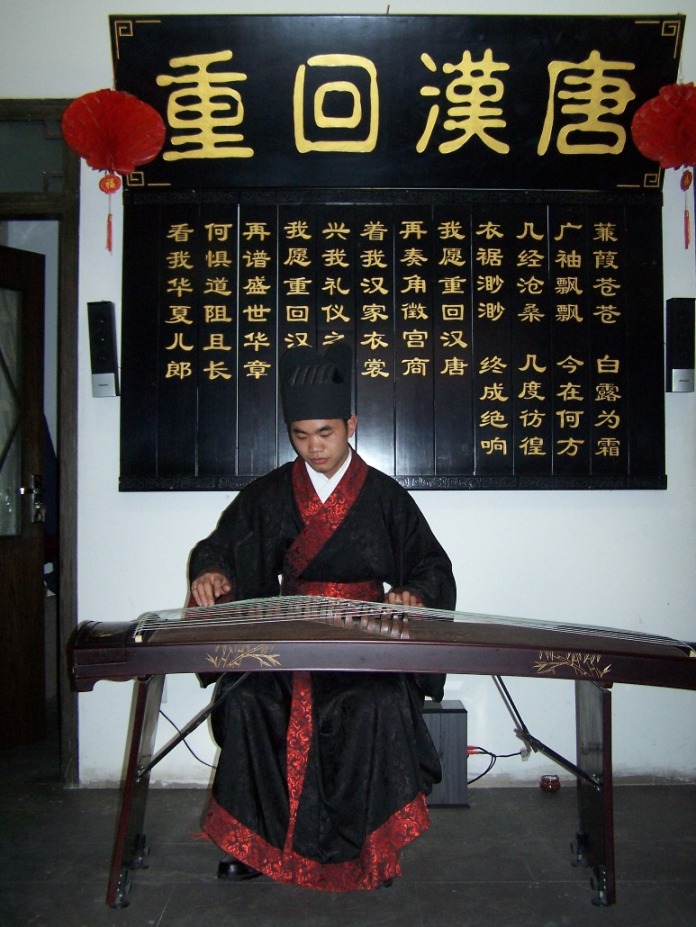 重回漢唐
蒹葭苍苍 白露为霜
广袖飘飘 今在何方
几经沧桑 几度彷徨
衣裾渺渺 终成绝响
我愿重回汉唐
再奏角徵宫商
着我汉家衣裳
兴我礼仪之
我愿重回汉
再谱盛世华章
何惧道阻且长
看我华夏儿郎
福